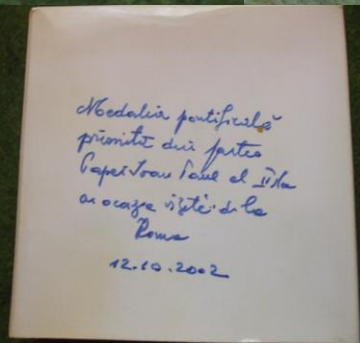 Medalia pontificală
primită din partea
Papei Ioan Paul al II lea
cu ocazia vizitei de la
Roma
12.10.2002